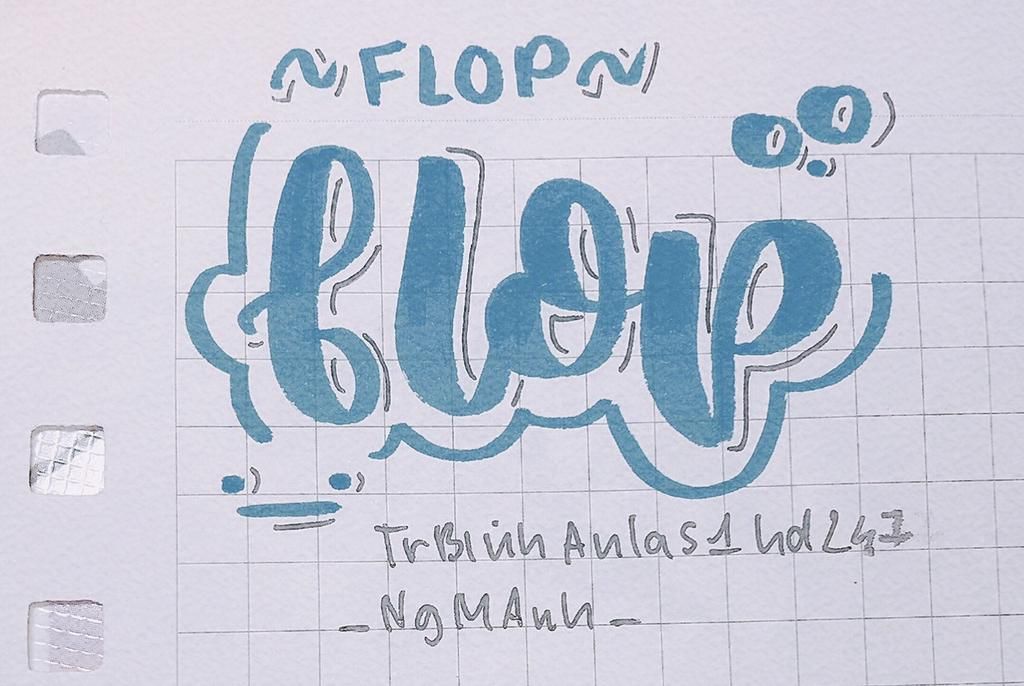 ~FLOP~
flop
TrBinh Anlas1hd247
-NgMAnh-